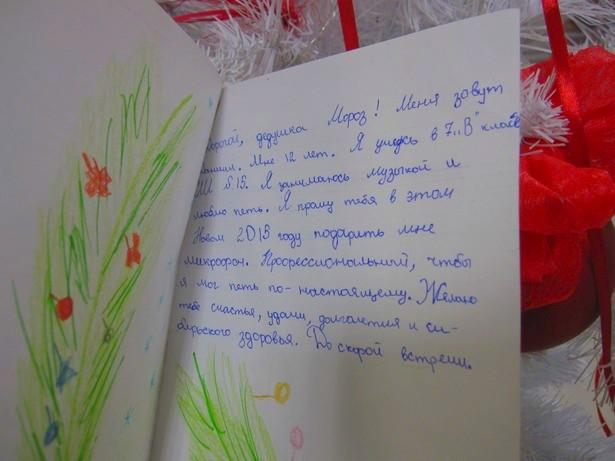 Дорогой, дедушка Мороз! Меня зовут
Мне 12 лет. Я учусь в 7 „В" классе
Я занимаюсь музыкой и
люблю петь. Я прошу тебя в этом
Новом 2013 году подарить мне
микрофон. Профессиональный, чтобы
я мог петь по-настоящему. Желаю
тебе счастья, удачи, долголетия и си-
бирского здоровья. До скорой встречи.